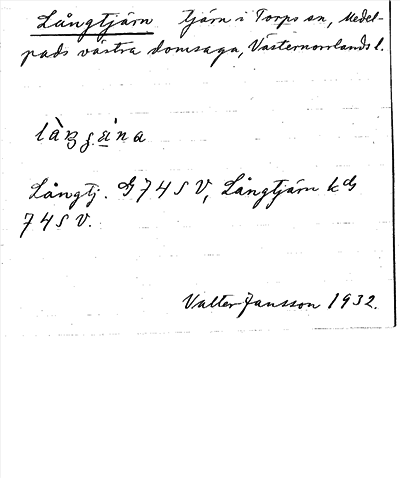 Långtjärn tjärn i Torps sn, Medel-
pads västra domsaga, Västernorrlands l.
Långtj. G 74 S V, Långtjärn kds
74 S V.
Valter Jansson 1932.